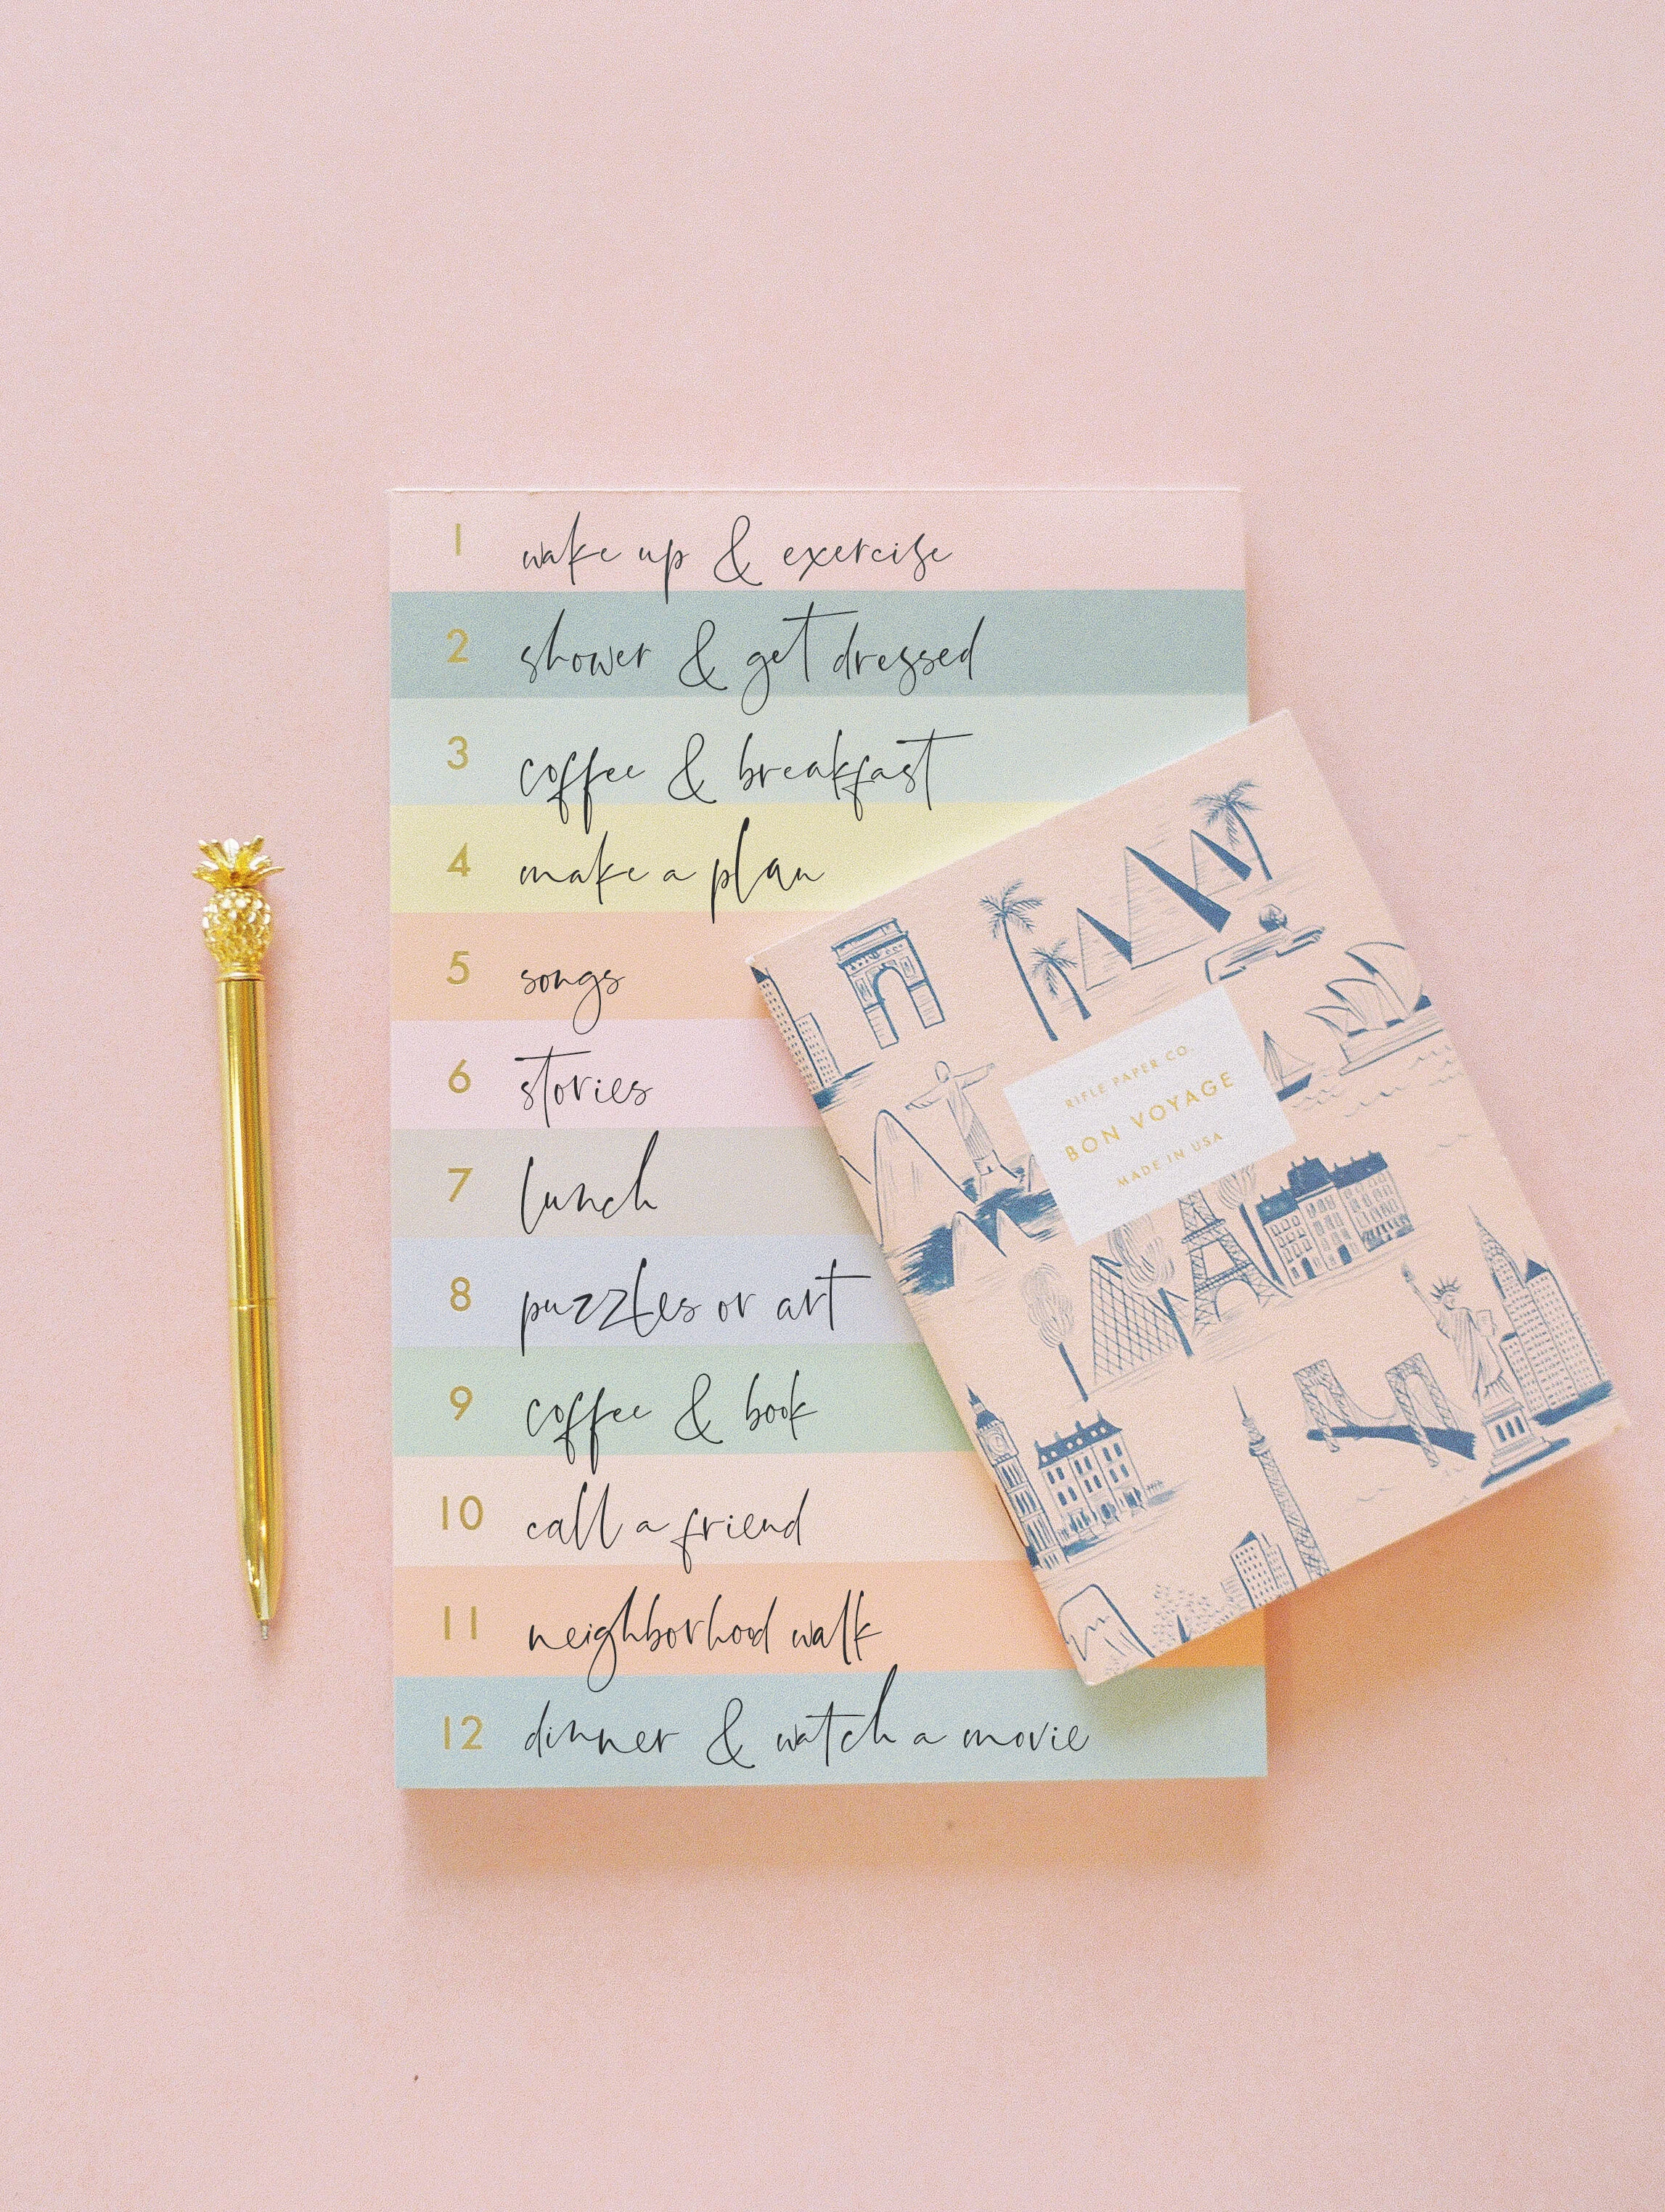 1 wake up & exercise
2 shower & get dressed
3 coffee & breakfast
4 make a plan
5 songs
6 stories
7 lunch
8 puzzles or art
9 coffee & book
10 call a friend
11 neighborhood walk
12 dinner & watch a movie
RIFLE PAPER CO.
BON VOYAGE
MADE IN USA